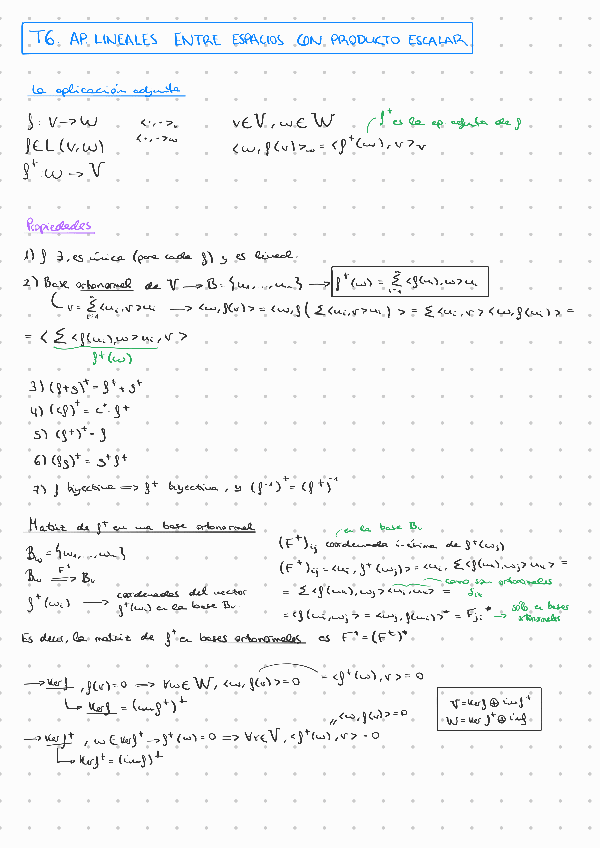 T6. AP. LINEALES ENTRE ESPACIOS CON PRODUCTO ESCALAR
La aplicación adjunta
f: V → W <·,·>ᵥ v ∈ V, w ∈ W f⁺ es la ap. adjunta de f
f ∈ L(V, W) <·,·>w <w, f(v)>w = <f⁺(w), v>ᵥ
f⁺ W → V
Propiedades
1) f ∃, es única (para cada f) y es lineal.
2) Base ortonormal de V → B = {u₁, ..., uₙ} → f⁺(w) = Σⁿᵢ₌₁ <f(uᵢ), w> uᵢ
v = Σⁿᵢ₌₁ <uᵢ, v> uᵢ → <w, f(v)> = <w, f(Σ<uᵢ, v> uᵢ)> = Σ<uᵢ, v> <w, f(uᵢ)> =
= <Σ<f(uᵢ), w> uᵢ, v>
f⁺(w)
3) (f+g)⁺ = f⁺ + g⁺
4) (cf)⁺ = c* f⁺
5) (f⁺)⁺ = f
6) (fg)⁺ = g⁺f⁺
7) f biyectiva ⟹ f⁺ biyectiva, y (f⁻¹)⁺ = (f⁺)⁻¹
Matriz de f⁺ en una base ortonormal
en la base Bᵥ
B_w = {w₁, ..., wₙ} (F⁺)ᵢⱼ coordenada i-ésima de f⁺(wⱼ)
B_w ⟹ Bᵥ F⁺ (F⁺)ᵢⱼ = <uᵢ, f⁺(wⱼ)> = <uᵢ, Σ<f(uₖ), wⱼ> uₖ> =
como son ortonormales
f⁺(wᵢ) → coordenadas del vector f⁺(wᵢ) en la base Bᵥ = Σ<f(uₖ), wⱼ> <uᵢ, uₖ> = δᵢₖ
= <f(uᵢ), wⱼ> = <wⱼ, f(uᵢ)>* = Fⱼᵢ* → sólo en bases ortonormales
Es decir, la matriz de f⁺ en bases ortonormales es F⁺ = (Fᵗ)*
→ Ker f, f(v) = 0 ⟹ ∀w ∈ W, <w, f(v)> = 0 = <f⁺(w), v> = 0
↳ Ker f = (im f⁺)⊥
V = Ker f ⊕ im f⁺
W = Ker f⁺ ⊕ im f
"<w, f(v)> = 0
→ Ker f⁺, w ∈ Ker f⁺ → f⁺(w) = 0 ⟹ ∀v ∈ V, <f⁺(w), v> = 0
↳ Ker f⁺ = (im f)⊥